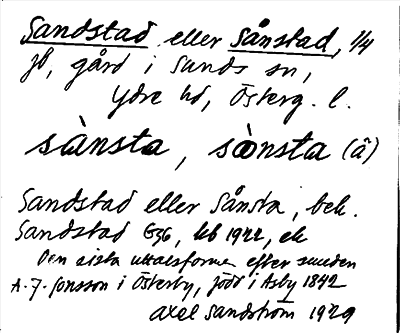 Sandstad eller Sånstad, 1/4
jb, gård i Sunds sn,
Ydre hd, Österg. l.
sànsta, sònsta (å)
Sandstad eller Sånsta, bek.
Sandstad G36, hb 1922, ek
Den sista uttalsformen efter smeden
A. J. Jonsson i Österby, född i Asby 1842
Axel Sandström 1929